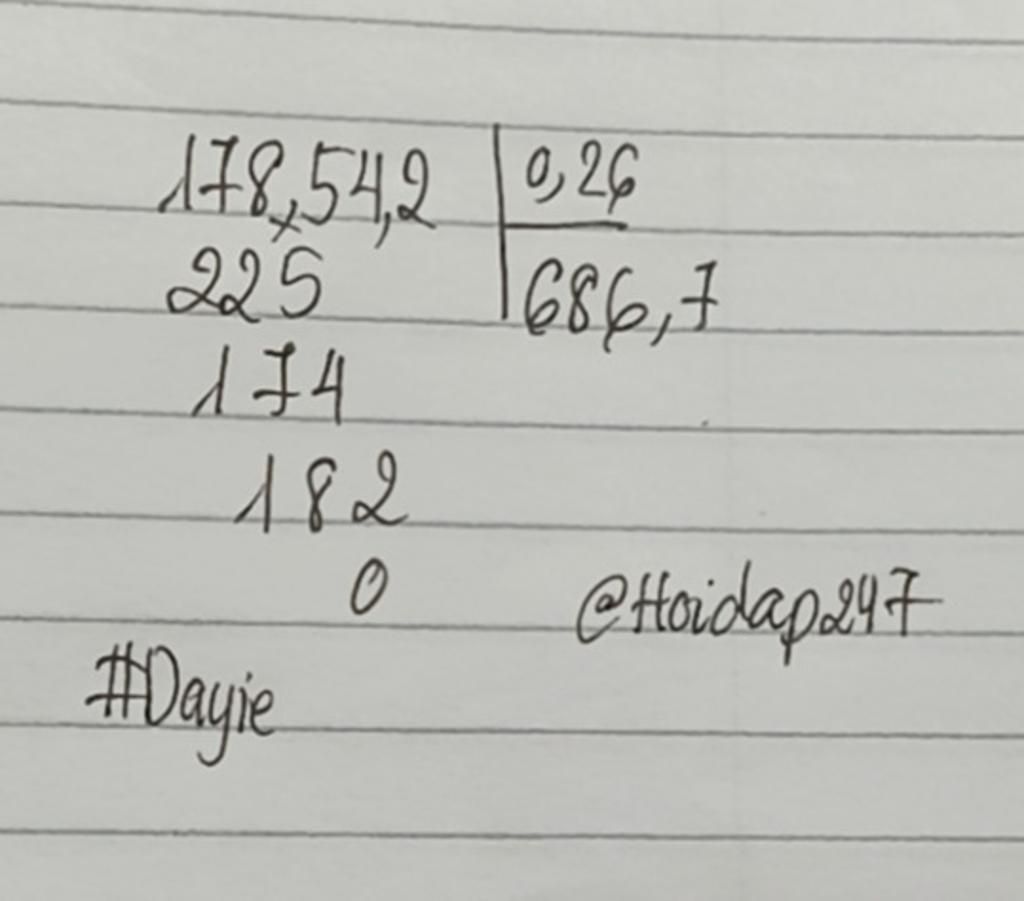 178,54,2 0,26
225 686,7
174
182
0
@Hoidap247
#Dayie